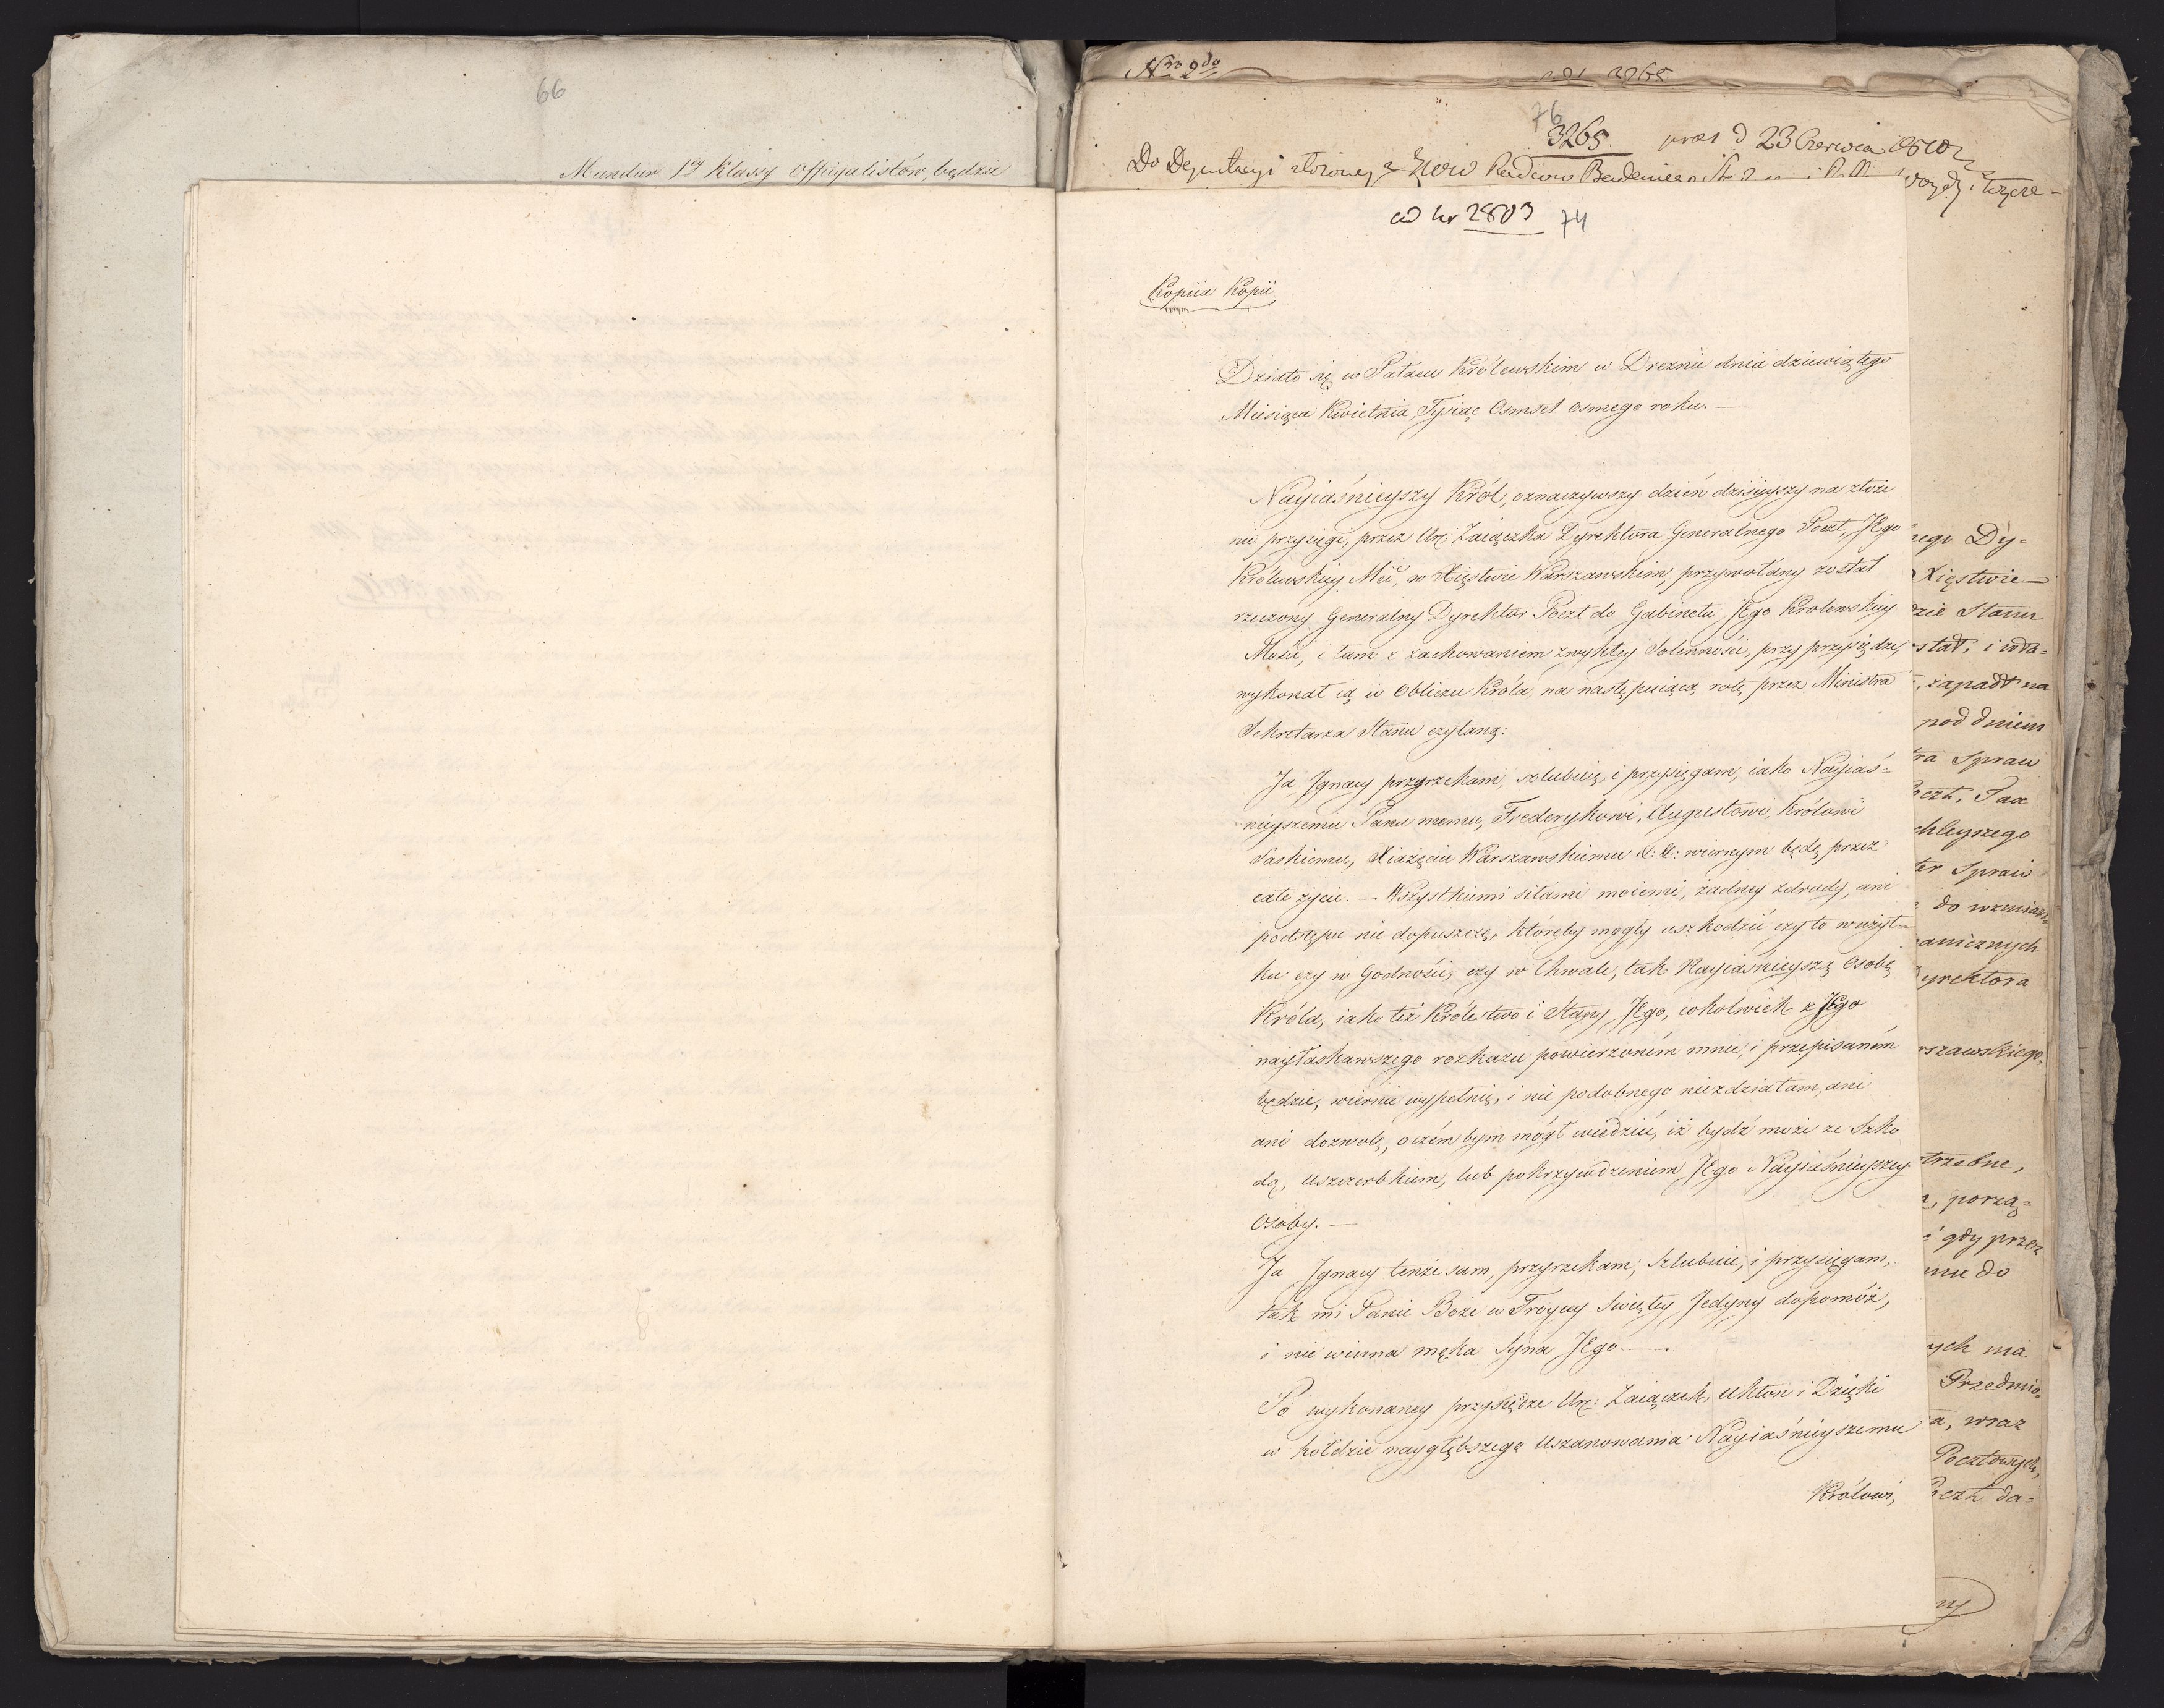 66
Mundur 1ey Klassy Offiyalistów, będzie
Nro 2do
3265
76
3265 prez d 23 Czerwca 1810
Do Deputacyi złożoney z
ad Nr 2803 74
Kopiia Kopii
Działo się w Pałacu Królewskim w Dreznie dnia dziewiątego
Miesiąca Kwietnia, Tysiąc Osmset osmego roku. —
Nayiaśnieyszy Król, oznaczywszy dzień dzisieyszy na złoże
nie przysięgi, przez Ur: Zaiączka Dyrektora Generalnego Poczt, JEgo
Królewskiey Mci, w Xięstwie Warszawskim, przywołany został
rzeczony Generalny Dyrektor Poczt do Gabinetu JEgo Krolewskiey
Mości, i tam z zachowaniem zwykłey Solenności, przy przysiędze,
wykonał ią w Obliczu Króla, na następuiącą rotę przez Ministra
Sekretarza Stanu czytaną:
Ja Jgnacy przyrzekam, szlubuię, i przysięgam, iako Nayiaś=
nieyszemu Panu memu, Frederykowi, Augustowi, Królowi
Saskiemu, Xiążęciu Warszawskiemu &: &: wiernym będę przez
całe życie. — Wszystkiemi siłami moiemi, żadney zdrady, ani
podstępu nie dopuszczę, któreby mogły uszkodzić czy to w użyt=
ku czy w Godności, czy w Chwale, tak Nayiaśnieyszą Osobę
Króla, iako też Królestwo i Stany JEgo, cokolwiek z JEgo
nayłaskawszego rozkazu powierzoném mnie, i przepisaném
będzie, wiernie wypełnię, i nic podobnego niezdziałam, ani
ani dozwolę, o czém bym mógł wiedzieć, iż bydź może ze Szko
dą, uszczerbkiem, lub pokrzywdzeniem JEgo Nayiaśnieyszey
Osoby. —
Ja Jgnacy tenże sam, przyrzekam, szlubuię, i przysięgam,
tak mi Panie Boże w Troycy Swiętey Jedyny dopomóż,
i nie winna męka Syna JEgo. —
Po wykonaney przysiędze Ur: Zaiączek, Ukłon i Dzięki
w hołdzie naygłębszego Uszanowania Nayiaśnieyszemu
Królowi,
nego Dy=
Xięstwie —
Stanu
stał, i wła=
, zapadł na
pod dniem
tra Spraw
oczt, Sax
chleyszego
ter Spraw
do wzmian=
anicznych
yrektora
rszawskiego,
trzebne,
, porzą=
gdy przez
mu do
ych ma
Przedmio=
a, wraz
Pocztowych,
oczt da=